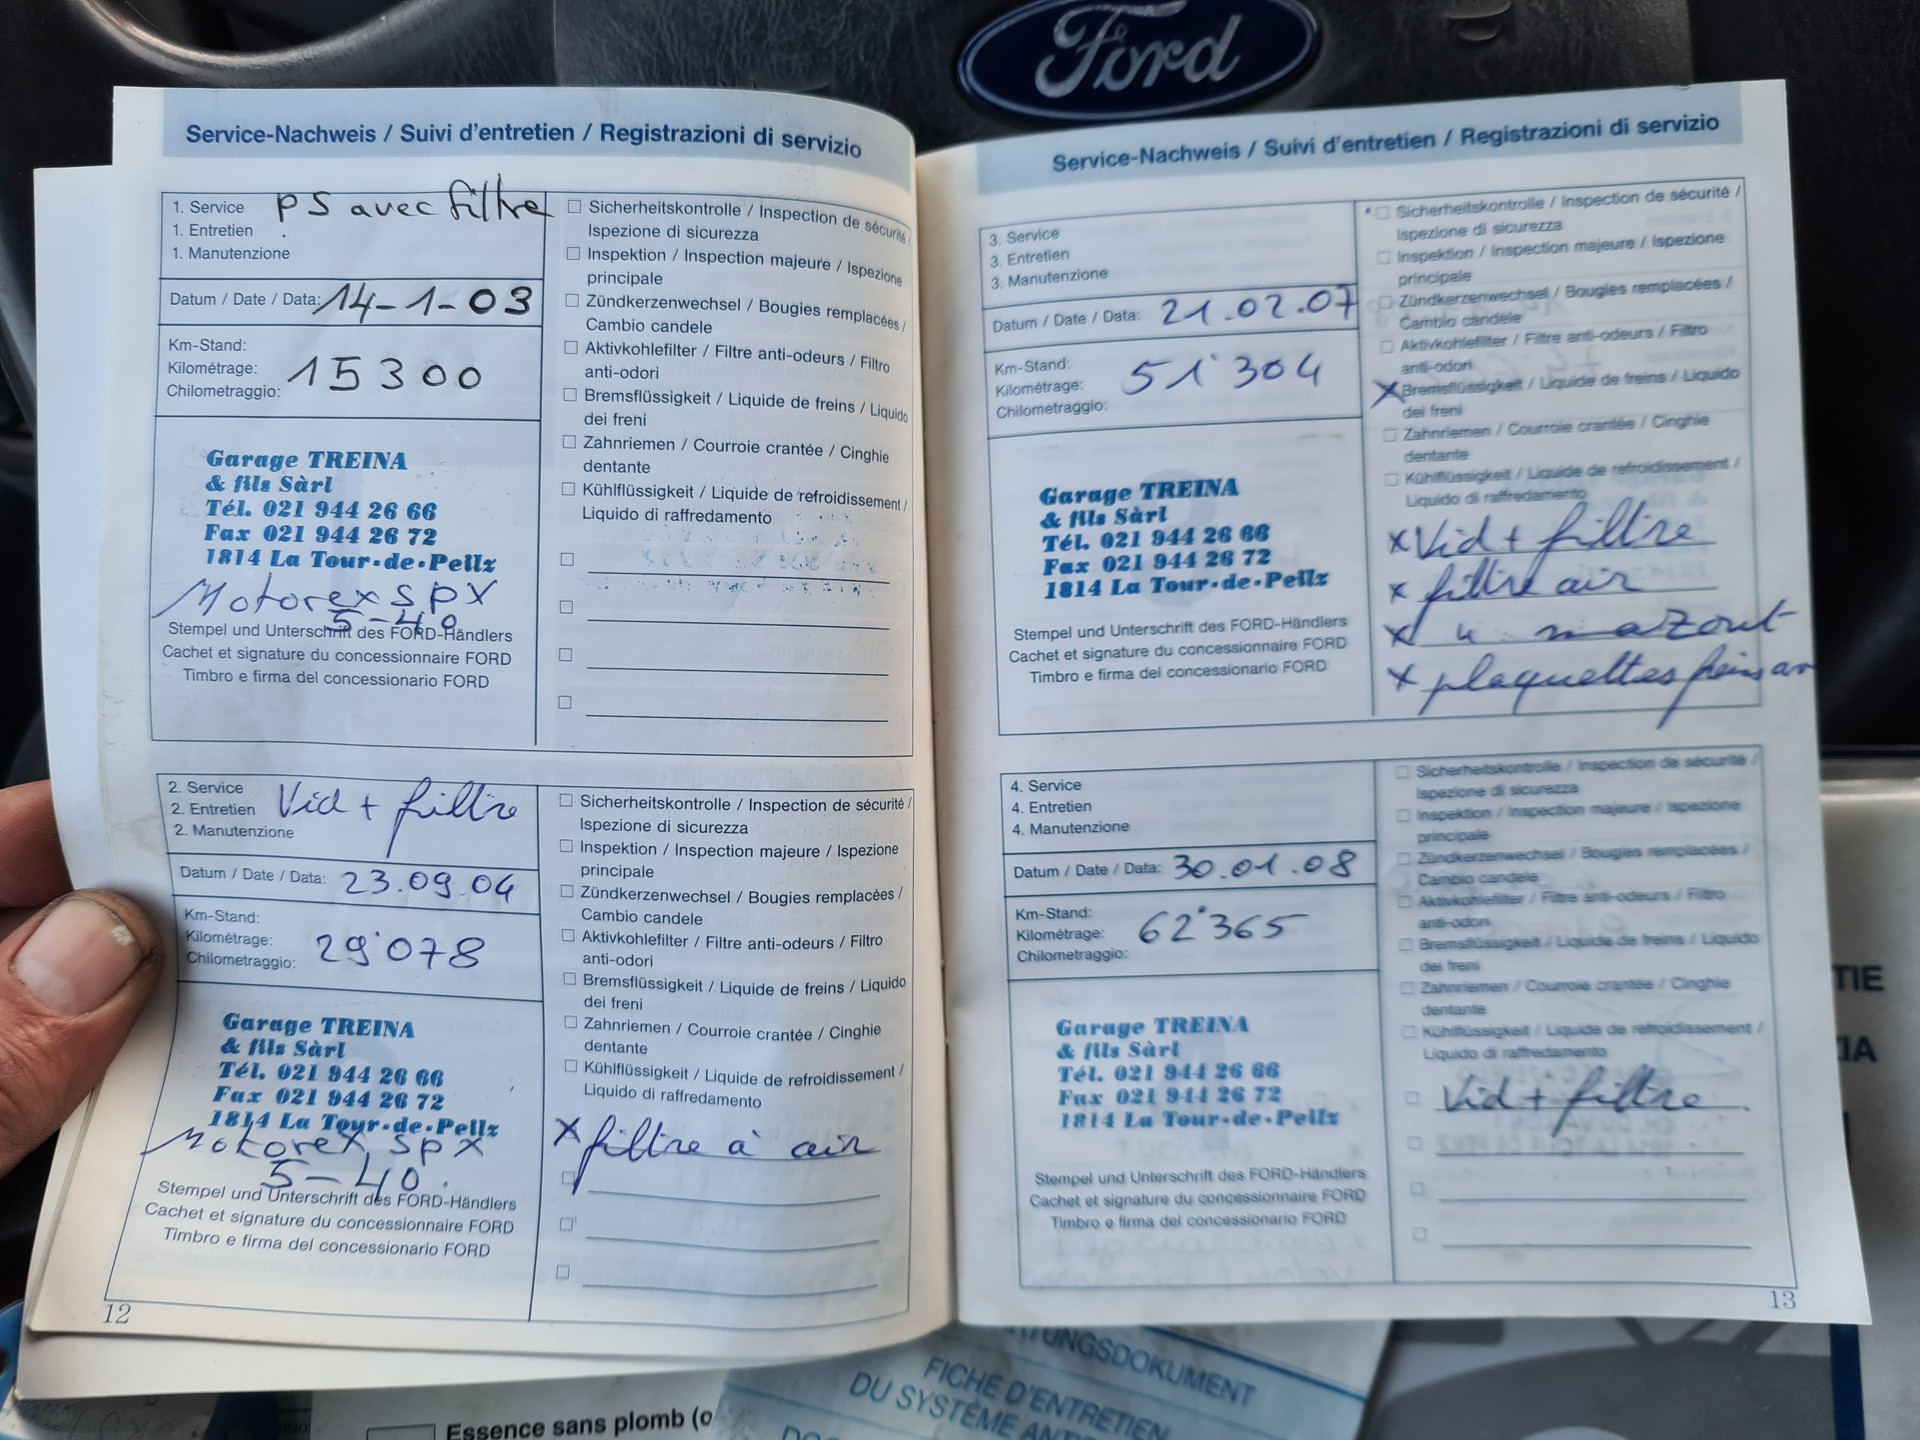 Ford
Service-Nachweis / Suivi d'entretien / Registrazioni di servizio
1. Service
1. Entretien
1. Manutenzione
PS avec filtre
Datum / Date / Data: 14-1-03
Km-Stand:
Kilométrage:
Chilometraggio:
15300
Garage TREINA
& fils Sàrl
Tél. 021 944 26 66
Fax 021 944 26 72
1814 La Tour-de-Peilz
Motorex spx
5-40
Stempel und Unterschrift des FORD-Händlers
Cachet et signature du concessionnaire FORD
Timbro e firma del concessionario FORD
Sicherheitskontrolle / Inspection de sécurité /
Ispezione di sicurezza
Inspektion / Inspection majeure / Ispezione
principale
Zündkerzenwechsel / Bougies remplacées /
Cambio candele
Aktivkohlefilter / Filtre anti-odeurs / Filtro
anti-odori
Bremsflüssigkeit / Liquide de freins / Liquido
dei freni
Zahnriemen / Courroie crantée / Cinghie
dentante
Kühlflüssigkeit / Liquide de refroidissement /
Liquido di raffredamento
2. Service
2. Entretien
2. Manutenzione
Vid + filtre
Datum / Date / Data: 23.09.04
Km-Stand:
Kilométrage:
Chilometraggio:
29'078
Garage TREINA
& fils Sàrl
Tél. 021 944 26 66
Fax 021 944 26 72
1814 La Tour-de-Peilz
Motorex spx
5-40.
Stempel und Unterschrift des FORD-Händlers
Cachet et signature du concessionnaire FORD
Timbro e firma del concessionario FORD
Sicherheitskontrolle / Inspection de sécurité /
Ispezione di sicurezza
Inspektion / Inspection majeure / Ispezione
principale
Zündkerzenwechsel / Bougies remplacées /
Cambio candele
Aktivkohlefilter / Filtre anti-odeurs / Filtro
anti-odori
Bremsflüssigkeit / Liquide de freins / Liquido
dei freni
Zahnriemen / Courroie crantée / Cinghie
dentante
Kühlflüssigkeit / Liquide de refroidissement /
Liquido di raffredamento
x filtre à air
12
Service-Nachweis / Suivi d'entretien / Registrazioni di servizio
3. Service
3. Entretien
3. Manutenzione
Datum / Date / Data: 21.02.07
Km-Stand:
Kilométrage:
Chilometraggio:
51'304
Garage TREINA
& fils Sàrl
Tél. 021 944 26 66
Fax 021 944 26 72
1814 La Tour-de-Peilz
Stempel und Unterschrift des FORD-Händlers
Cachet et signature du concessionnaire FORD
Timbro e firma del concessionario FORD
Sicherheitskontrolle / Inspection de sécurité /
Ispezione di sicurezza
Inspektion / Inspection majeure / Ispezione
principale
Zündkerzenwechsel / Bougies remplacées /
Cambio candele
Aktivkohlefilter / Filtre anti-odeurs / Filtro
anti-odori
x Bremsflüssigkeit / Liquide de freins / Liquido
dei freni
Zahnriemen / Courroie crantée / Cinghie
dentante
Kühlflüssigkeit / Liquide de refroidissement /
Liquido di raffredamento
x Vid + filtre
x filtre air
x " mazout
x plaquettes freins ar
4. Service
4. Entretien
4. Manutenzione
Datum / Date / Data: 30.01.08
Km-Stand:
Kilométrage:
Chilometraggio:
62'365
Garage TREINA
& fils Sàrl
Tél. 021 944 26 66
Fax 021 944 26 72
1814 La Tour-de-Peilz
Stempel und Unterschrift des FORD-Händlers
Cachet et signature du concessionnaire FORD
Timbro e firma del concessionario FORD
Sicherheitskontrolle / Inspection de sécurité /
Ispezione di sicurezza
Inspektion / Inspection majeure / Ispezione
principale
Zündkerzenwechsel / Bougies remplacées /
Cambio candele
Aktivkohlefilter / Filtre anti-odeurs / Filtro
anti-odori
Bremsflüssigkeit / Liquide de freins / Liquido
dei freni
Zahnriemen / Courroie crantée / Cinghie
dentante
Kühlflüssigkeit / Liquide de refroidissement /
Liquido di raffredamento
Vid + filtre
13
TIE
FICHE D'ENTRETIEN
DU SYSTÈME
Essence sans plomb